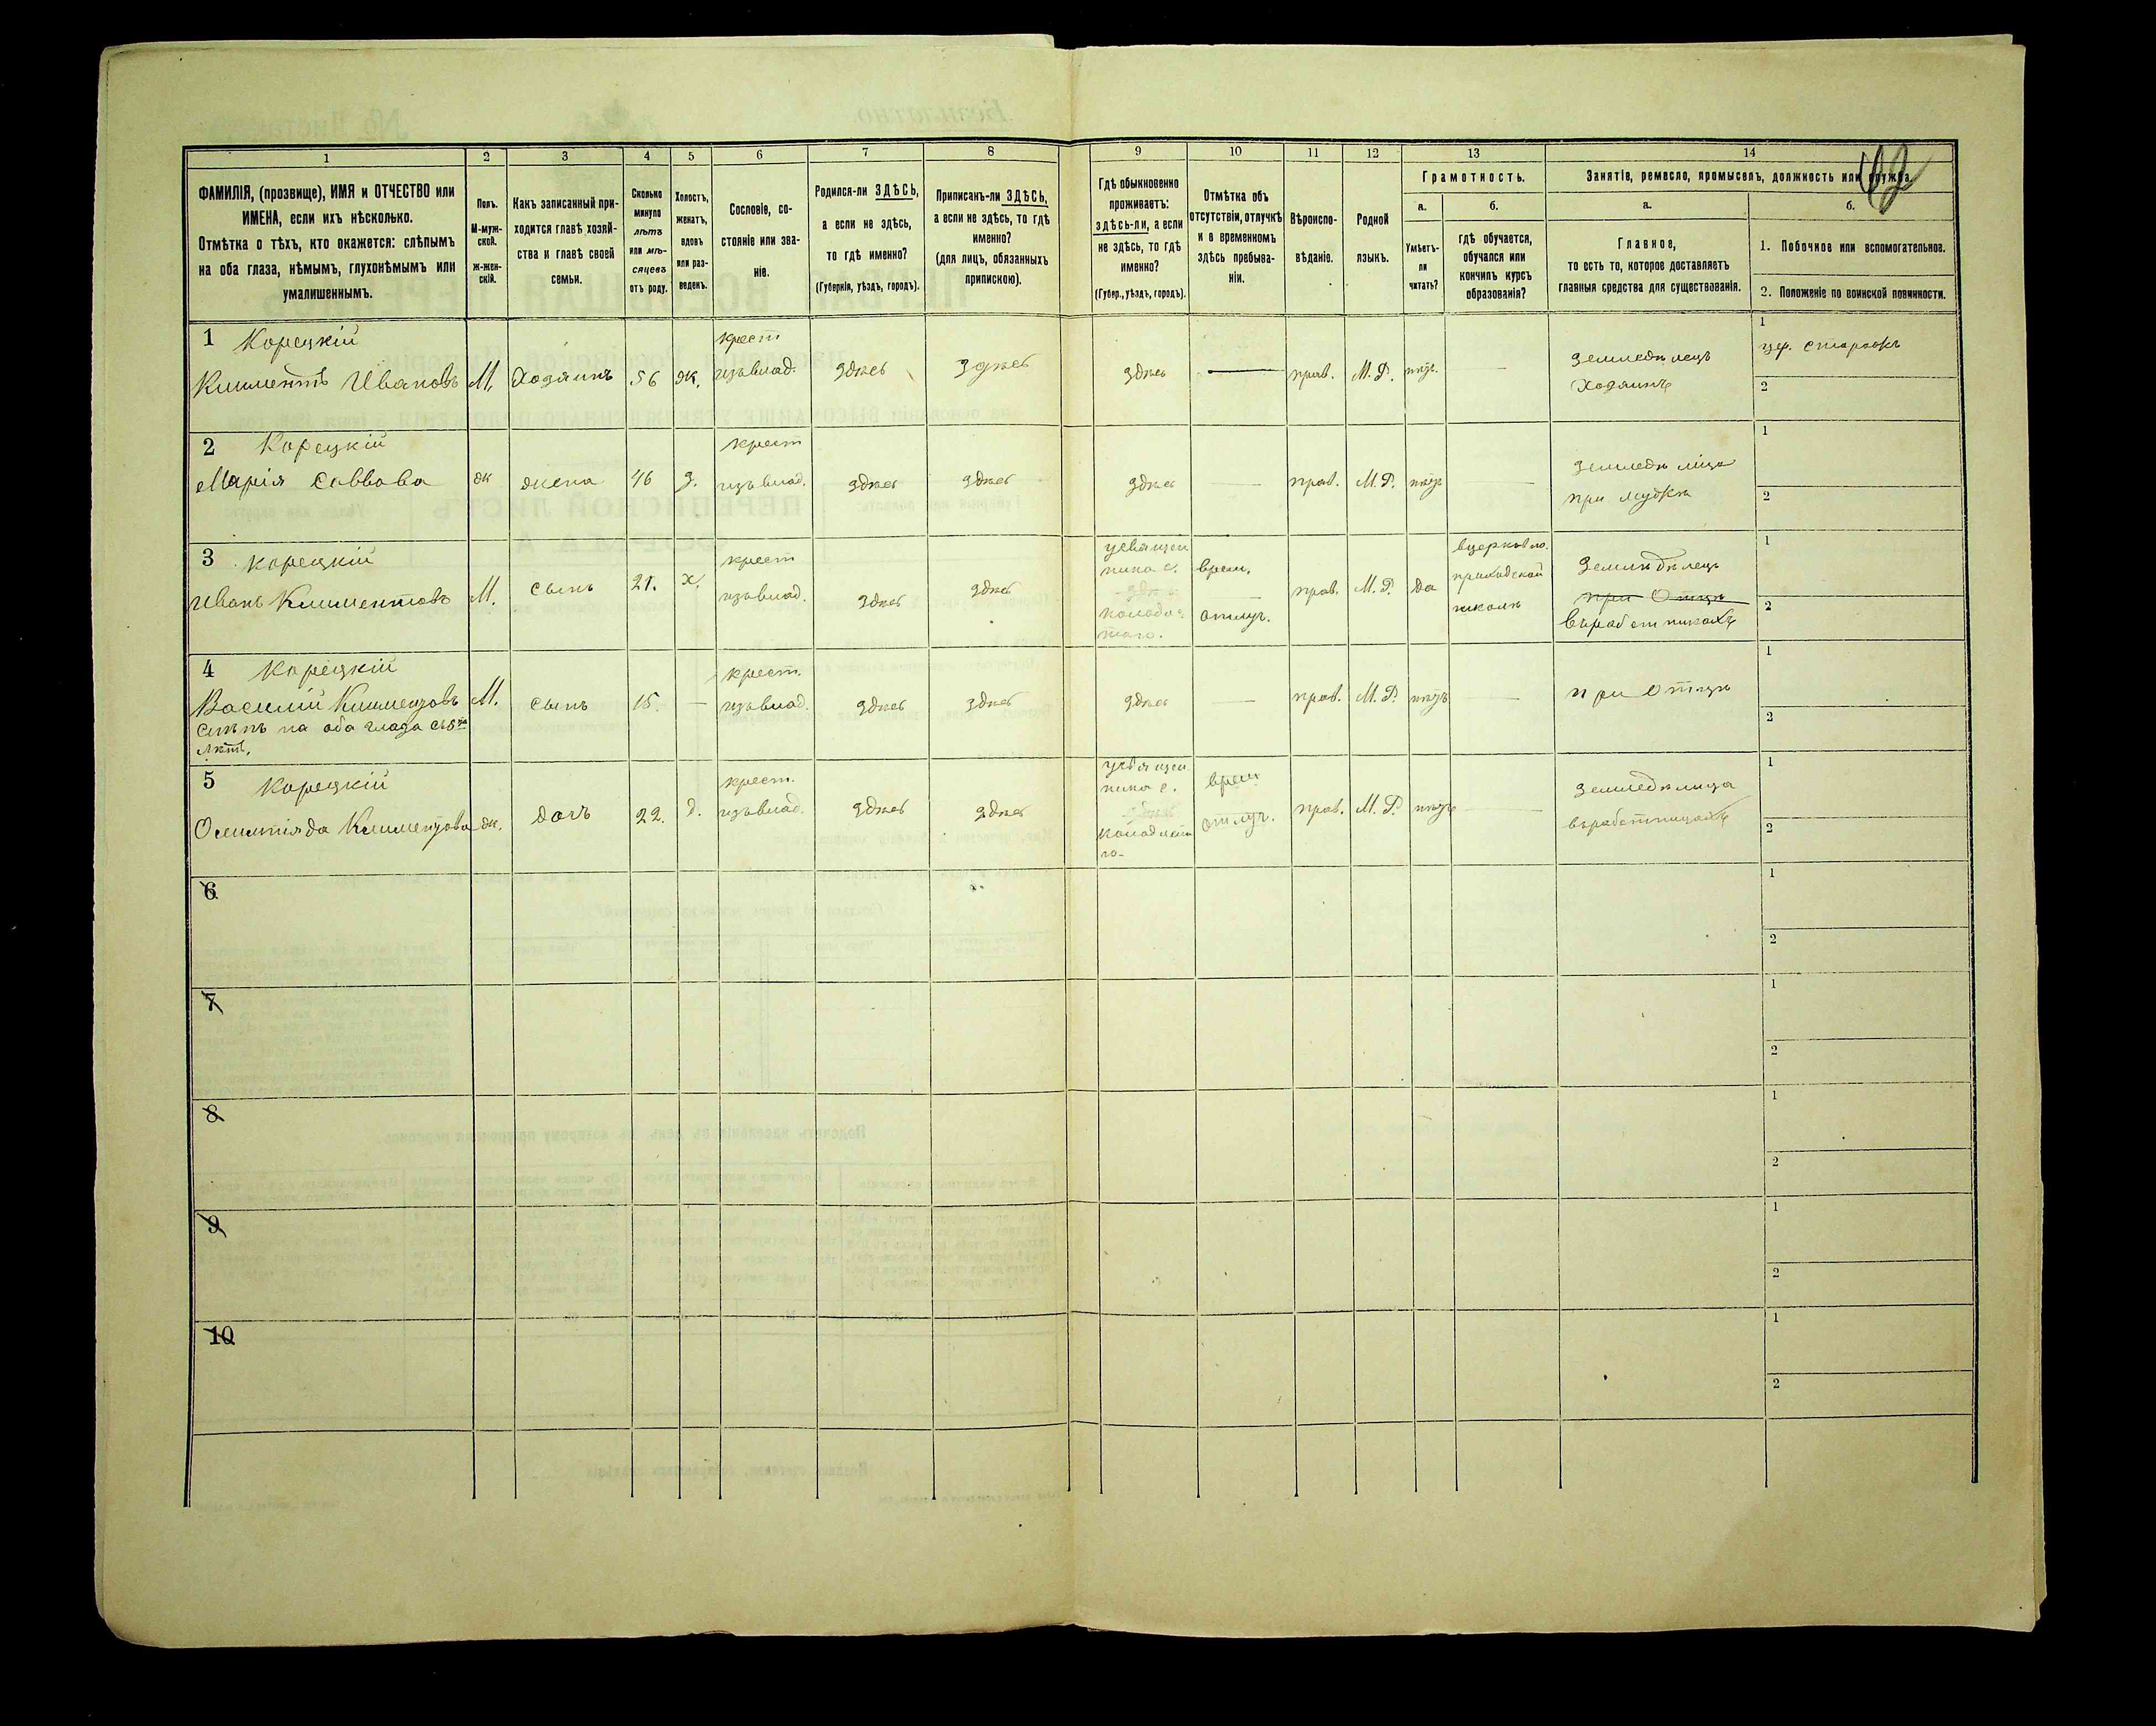 1 2 3 4 5 6 7 8 9 10 11 12 13 14
ФАМИЛІЯ, (прозвище), ИМЯ и ОТЧЕСТВО или ИМЕНА, если ихъ нѣсколько.
Отмѣтка о тѣхъ, кто окажется: слѣпымъ на оба глаза, нѣмымъ, глухонѣмымъ или умалишеннымъ.
Полъ.
М-мужской.
ж-женскій.
Какъ записанный приходится главѣ хозяйства и главѣ своей семьи.
Сколько минуло лѣтъ или мѣсяцевъ отъ роду.
Холостъ, женатъ, вдовъ или разведенъ.
Сословіе, состояніе или званіе.
Родился-ли ЗДѢСЬ, а если не здѣсь, то гдѣ именно?
(Губернія, уѣздъ, городъ).
Приписанъ-ли ЗДѢСЬ, а если не здѣсь, то гдѣ именно?
(для лицъ, обязанныхъ припискою).
Гдѣ обыкновенно проживаетъ: здѣсь-ли, а если не здѣсь, то гдѣ именно?
(Губер., уѣздъ, городъ).
Отмѣтка объ отсутствіи, отлучкѣ и о временномъ здѣсь пребываніи.
Вѣроисповѣданіе.
Родной языкъ.
Грамотность.
а.
Умѣетъ-ли читать?
б.
гдѣ обучается, обучался или кончилъ курсъ образованія?
Занятіе, ремесло, промыселъ, должность или служба.
а.
Главное,
то есть то, которое доставляетъ главныя средства для существованія.
б.
1. Побочное или вспомогательное.
2. Положеніе по воинской повинности.
1 Корецкій
Климентъ Ивановъ М. Хозяинъ 56 ж. крест изъ влад. здѣсь здѣсь здѣсь — прав. М.Р. нѣтъ — земледѣлецъ Хозяинъ 1 цер. староста 2
2 Корецкій
Марія Саввова ж жена 46 з. крест изъ влад. здѣсь здѣсь здѣсь — прав. М.Р. нѣтъ — земледѣлица при мужѣ 1 2
3 Корецкій
Иванъ Климентовъ М. сынъ 21. х. крест изъ влад. здѣсь здѣсь у священника с. врем. отлуч. прав. М.Р. да в церковно приходской школѣ земледѣлецъ при Отцѣ в работникахъ 1 2
4 Корецкій
Василий Климентовъ М. сынъ 15. — крест. изъ влад. здѣсь здѣсь здѣсь — прав. М.Р. нѣтъ — при Отцѣ 1 2
слѣпъ на оба глаза съ 5
лѣтъ.
5 Корецкій
Климентова ж. дочь 22. д. крест. изъ влад. здѣсь здѣсь у священника с. врем отлуч. прав. М.Р. нѣтъ — земледѣлица в работницахъ 1 2
6 1 2
7 1 2
8 1 2
9 1 2
10 1 2